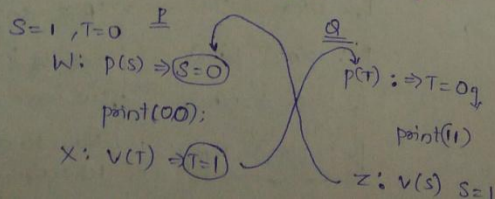 S=1, T=0 P Q
W: P(S) ⇒ S=0 P(T) : ⇒ T=0
print(00); print(11)
X: V(T) ⇒ T=1 Z: V(S) S=1